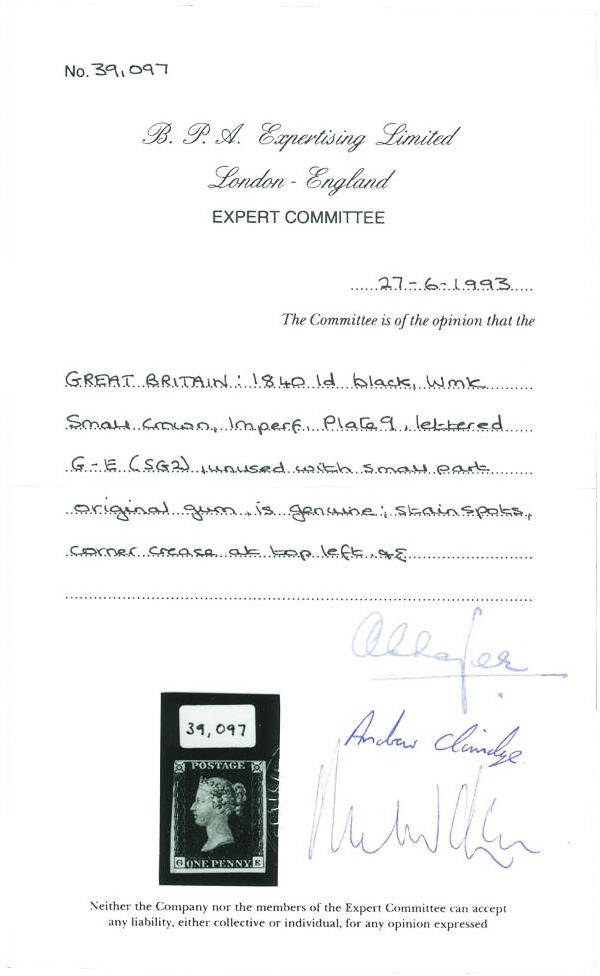 No. 39,097
B. P. A. Expertising Limited
London - England
EXPERT COMMITTEE
27-6-1993
The Committee is of the opinion that the
GREAT BRITAIN: 1840 1d black, Wmk
Small Crown, Imperf, Plate 9, lettered
G-E (SG2), unused with small part
original gum, is genuine; stain spots,
corner crease at top left.
39,097
POSTAGE
G ONE PENNY. E
Andrew
Neither the Company nor the members of the Expert Committee can accept
any liability, either collective or individual, for any opinion expressed